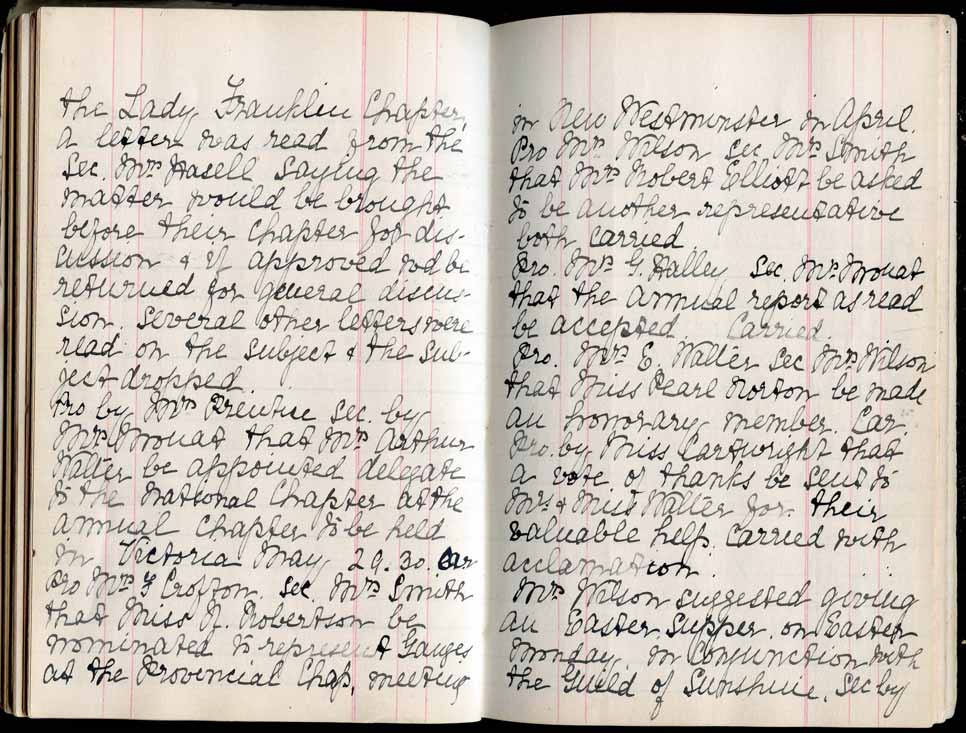 the Lady Franklin Chapter,
a letter was read from the
Sec. Mrs Hasell saying the
matter would be brought
before their Chapter for dis-
cussion & if approved wd be
returned for general discus-
sion. Several other letters were
read on the subject & the sub-
ject dropped.
Pro by Mrs Prentice Sec. by
Mrs Mouat that Mrs Arthur
Walter be appointed delegate
to the National Chapter at the
annual Chapter to be held
in Victoria May 29.30. Car
Pro Mrs F Crofton. Sec. Mrs Smith
that Miss N. Robertson be
nominated to represent Ganges
at the Provincial Chap. meeting
in New Westminster in April.
Pro Mrs Wilson Sec Mrs Smith
that Mrs Robert Elliott be asked
to be another representative
both carried.
Pro. Mrs G. Halley Sec. Mrs Mouat
that the annual report as read
be accepted Carried.
Pro. Mrs E. Walter Sec Mrs Wilson
that Miss Pearl Norton be made
an honorary member. Car.
Pro. by Miss Cartwright that
a vote of thanks be sent to
Mrs & Miss Walter for their
valuable help. Carried with
acclamation.
Mrs Wilson suggested giving
an Easter Supper. on Easter
Monday. in Conjunction with
the Guild of Sunshine. Sec by